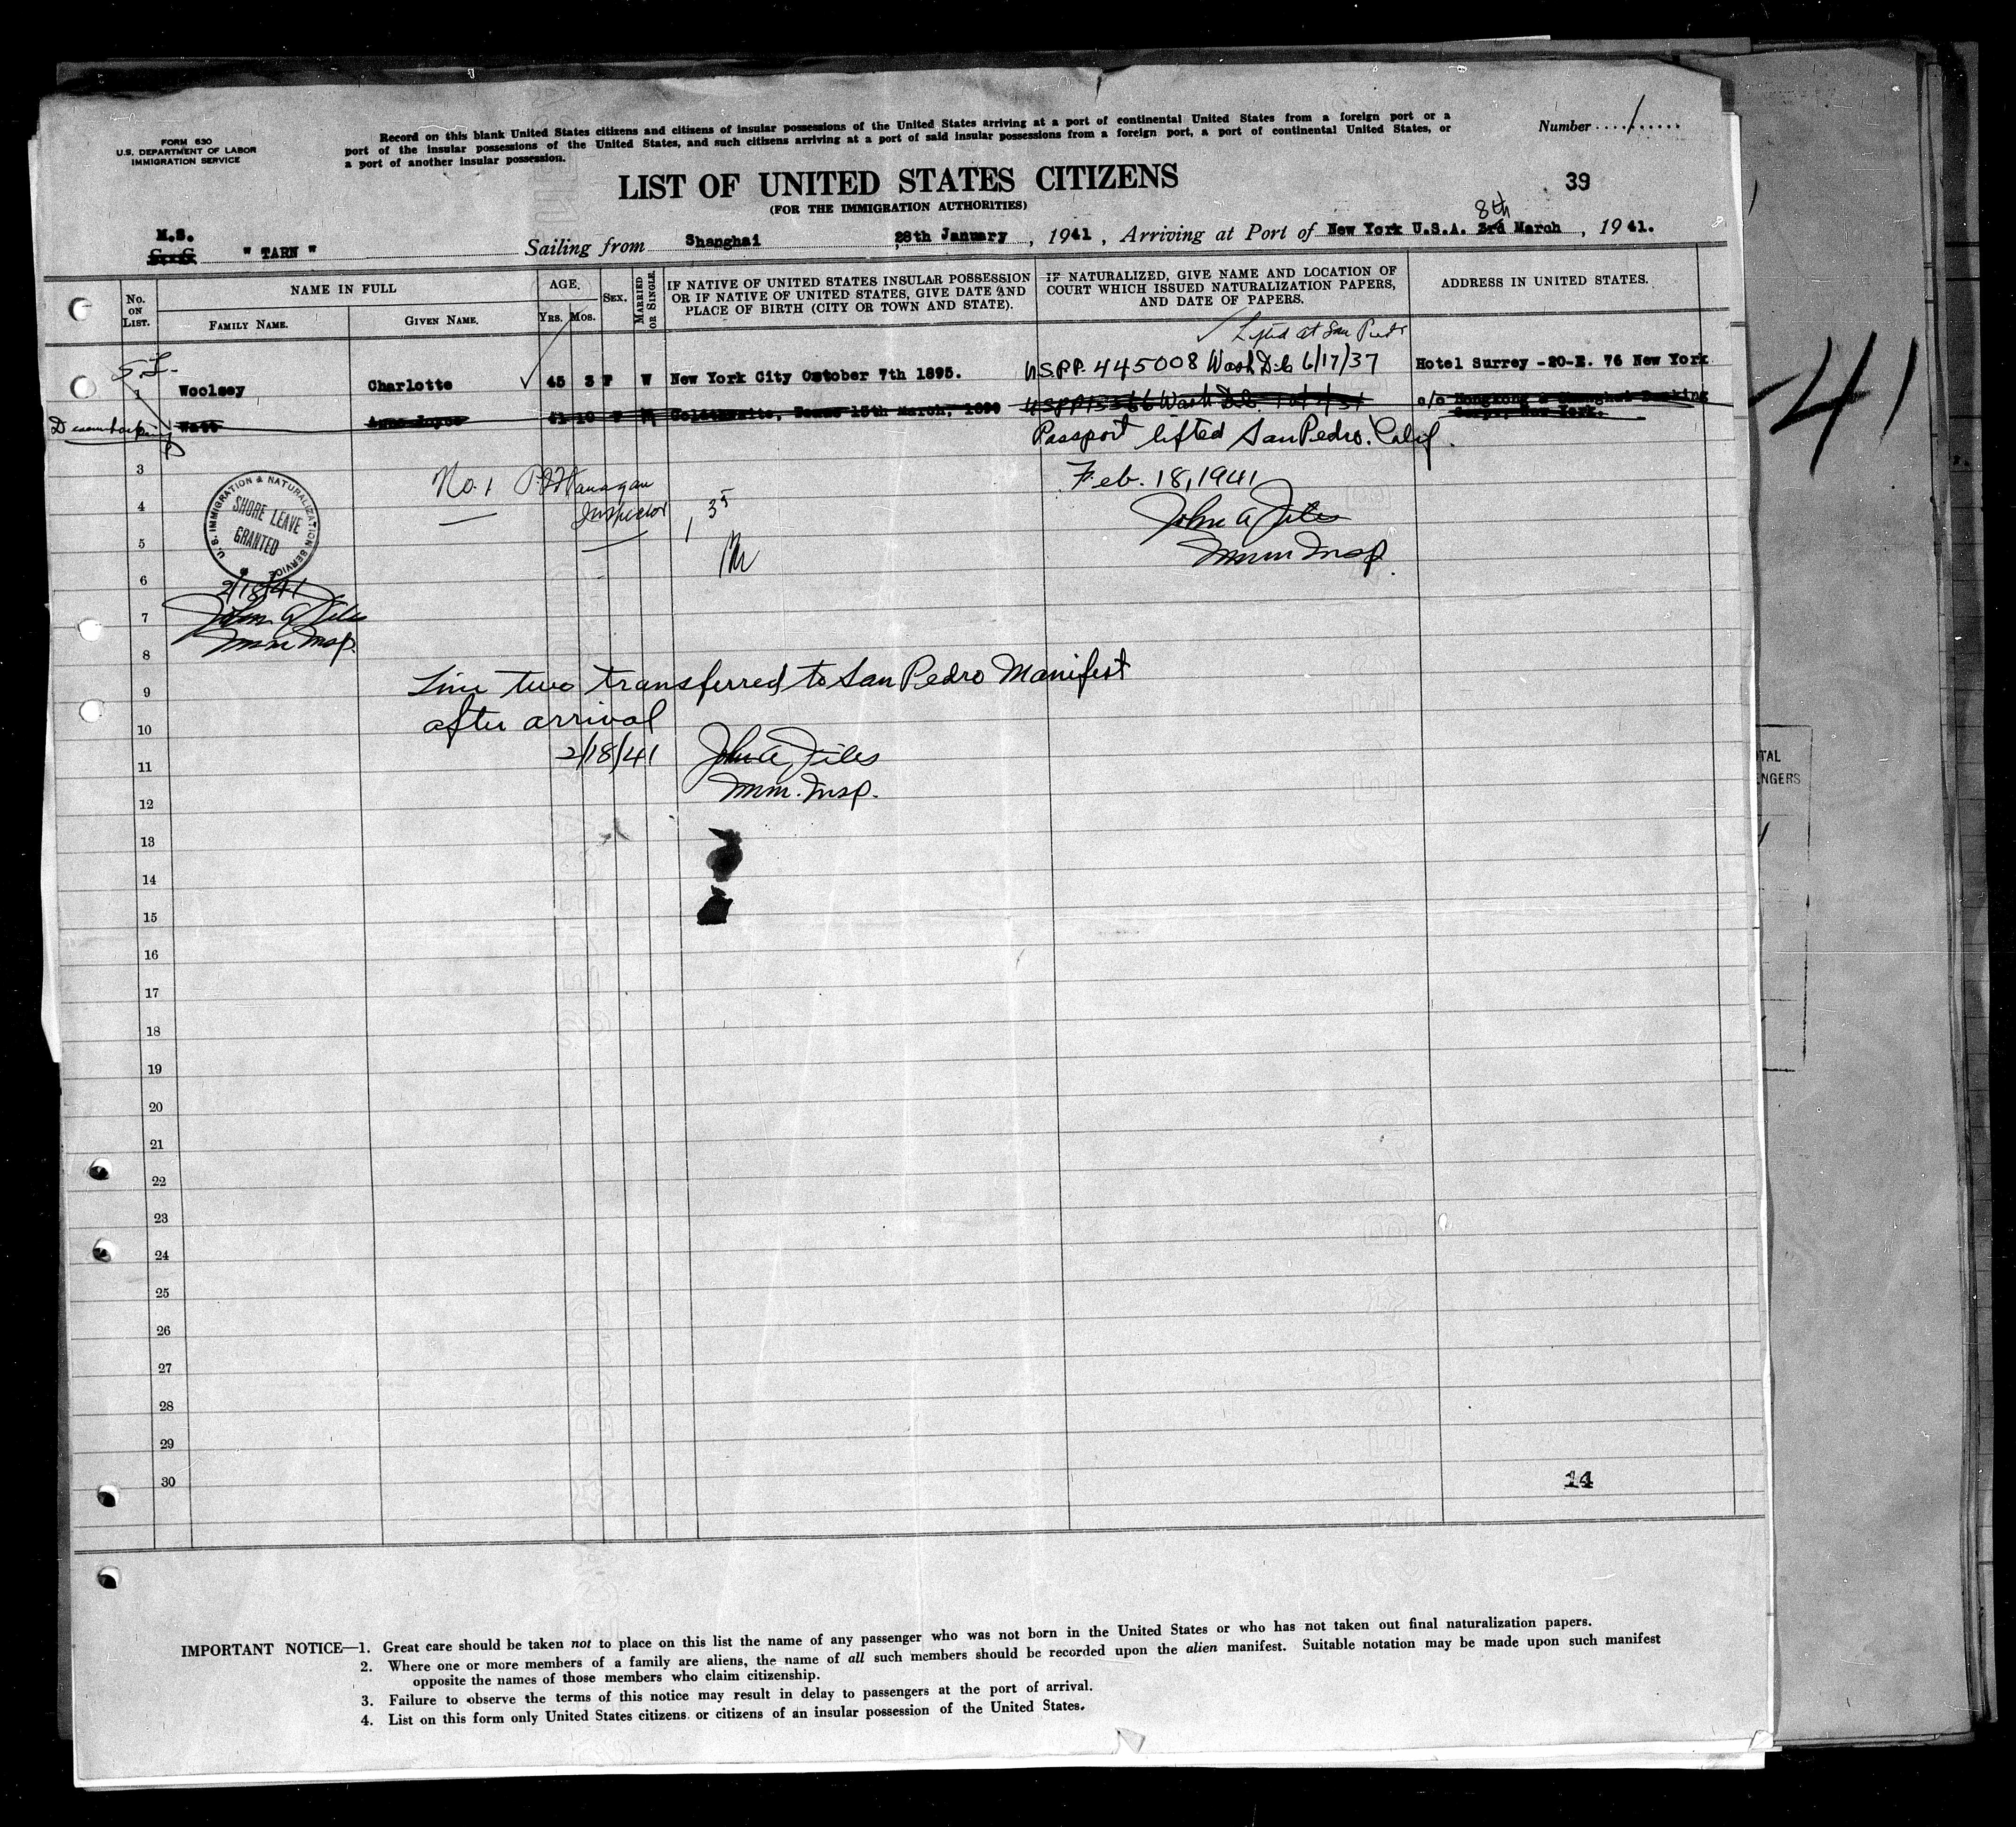 FORM 630
U.S. DEPARTMENT OF LABOR
IMMIGRATION SERVICE
Record on this blank United States citizens and citizens of insular possessions of the United States arriving at a port of continental United States from a foreign port or a
port of the insular possessions of the United States, and such citizens arriving at a port of said insular possessions from a foreign port, a port of continental United States, or
a port of another insular possession.
Number ..../.....
LIST OF UNITED STATES CITIZENS
(FOR THE IMMIGRATION AUTHORITIES)
39
8th
M.S.
S.S. " TARN " Sailing from Shanghai 28th January, 1941, Arriving at Port of New York U.S.A. 3rd March, 1941.
No. ON LIST. NAME IN FULL FAMILY NAME. GIVEN NAME. AGE. YRS. MOS. SEX. MARRIED OR SINGLE.
IF NATIVE OF UNITED STATES INSULAR POSSESSION OR IF NATIVE OF UNITED STATES, GIVE DATE AND PLACE OF BIRTH (CITY OR TOWN AND STATE).
IF NATURALIZED, GIVE NAME AND LOCATION OF COURT WHICH ISSUED NATURALIZATION PAPERS, AND DATE OF PAPERS.
ADDRESS IN UNITED STATES.
Lifted at San Pedro
S.I.
1 Woolsey Charlotte 45 3 F W New York City October 7th 1895. USPP. 445008 Wash D.C. 6/17/37 Hotel Surrey -20-E. 76 New York
Disembarking Watt Anne Joyce 41 10 F M Goldthwaite, Texas 15th March, 1899 c/o Hongkong & Shanghai Banking
Corps, New York.
Passport lifted San Pedro, Calif.
3
Feb. 18, 1941
No. 1
Inspector
John A Files
Imm Insp.
U.S. IMMIGRATION & NATURALIZATION SERVICE
SHORE LEAVE
GRANTED
4
1 35
5
6
2/18/41
John A Files
Imm Insp.
7
8
Line two transferred to San Pedro Manifest
9
after arrival
10
2/18/41 John A. Files
11
Imm. Insp.
12
13
14
15
16
17
18
19
20
21
22
23
24
25
26
27
28
29
30
14
IMPORTANT NOTICE—1. Great care should be taken not to place on this list the name of any passenger who was not born in the United States or who has not taken out final naturalization papers.
2. Where one or more members of a family are aliens, the name of all such members should be recorded upon the alien manifest. Suitable notation may be made upon such manifest
opposite the names of those members who claim citizenship.
3. Failure to observe the terms of this notice may result in delay to passengers at the port of arrival.
4. List on this form only United States citizens or citizens of an insular possession of the United States.
-41
TAL
ENGERS